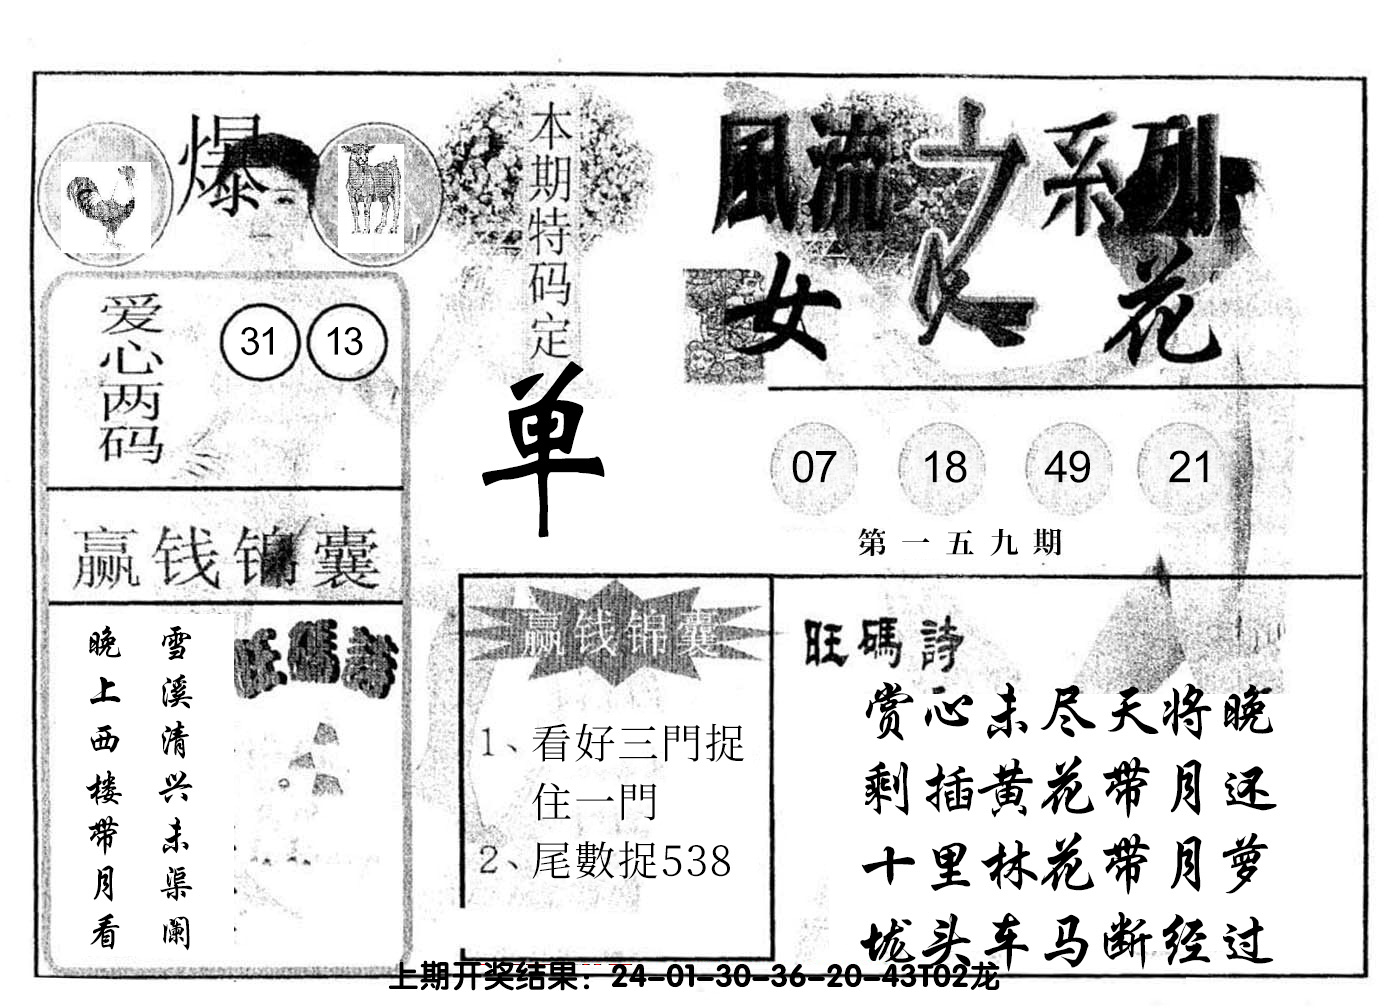 爆
本期特码定
单
風流之系列
女人花
爱心两码
31 13
07 18 49 21
第一五九期
赢钱锦囊
旺碼詩
雪溪清兴未渠阑
晚上西楼带月看
赢钱锦囊
1、看好三門捉
住一門
2、尾數捉538
旺碼詩
赏心未尽天将晚
剩插黄花带月还
十里林花带月萝
垅头车马断经过
上期开奖结果：24-01-30-36-20-43T02龙